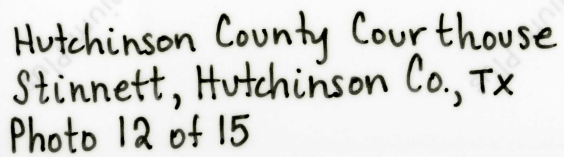 Hutchinson County Courthouse
Stinnett, Hutchinson Co., TX
Photo 12 of 15